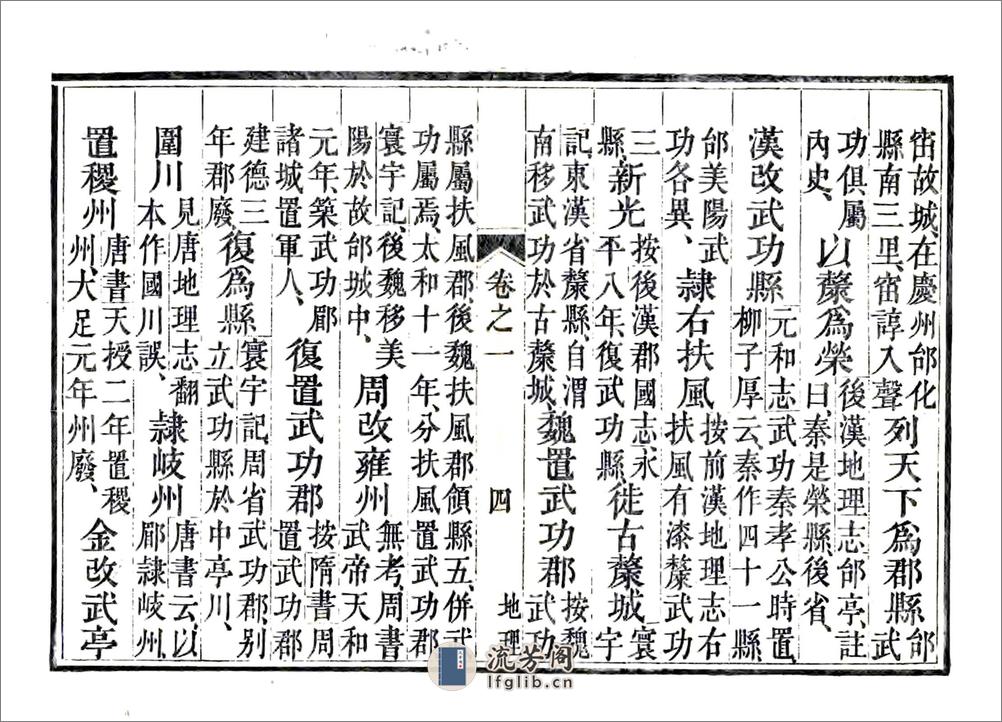 窋故城在慶州邰化
縣南三里窋諄入聲
列天下爲郡縣
邰
武
功俱屬
內史、
以斄爲榮
後漢地理志邰亭註
曰秦是榮縣後省、
漢改武功縣
元和志武功秦孝公時置
柳子厚云秦作四十一縣
邰美陽武
功各異、
隷右扶風
按前漢地理志右
扶風有漆斄武功
三
縣
新光
按後漢郡國志永
平八年復武功縣
徙古斄城
寰
宇
記東漢省斄縣自渭
南移武功於古斄城
魏置武功郡
按魏
武功
卷之一
四
地理
縣屬扶風郡後魏扶風郡領縣五併武
功屬焉太和十一年分扶風置武功郡
寰宇記後魏移美
陽於故邰城中、
周改雍州
無考周書
武帝天和
元年築武功郿
諸城置軍人、
復置武功郡
按隋書周
置武功郡
建德三
年郡廢
復爲縣
寰宇記周省武功郡別
立武功縣於中亭川、
圍川
見唐地理志翻
本作國川誤、
隷岐州
唐書云以
郿隷岐州
置稷州
唐書天授二年置稷
州大足元年州廢、
金改武亭
流芳阁
lfglib.cn